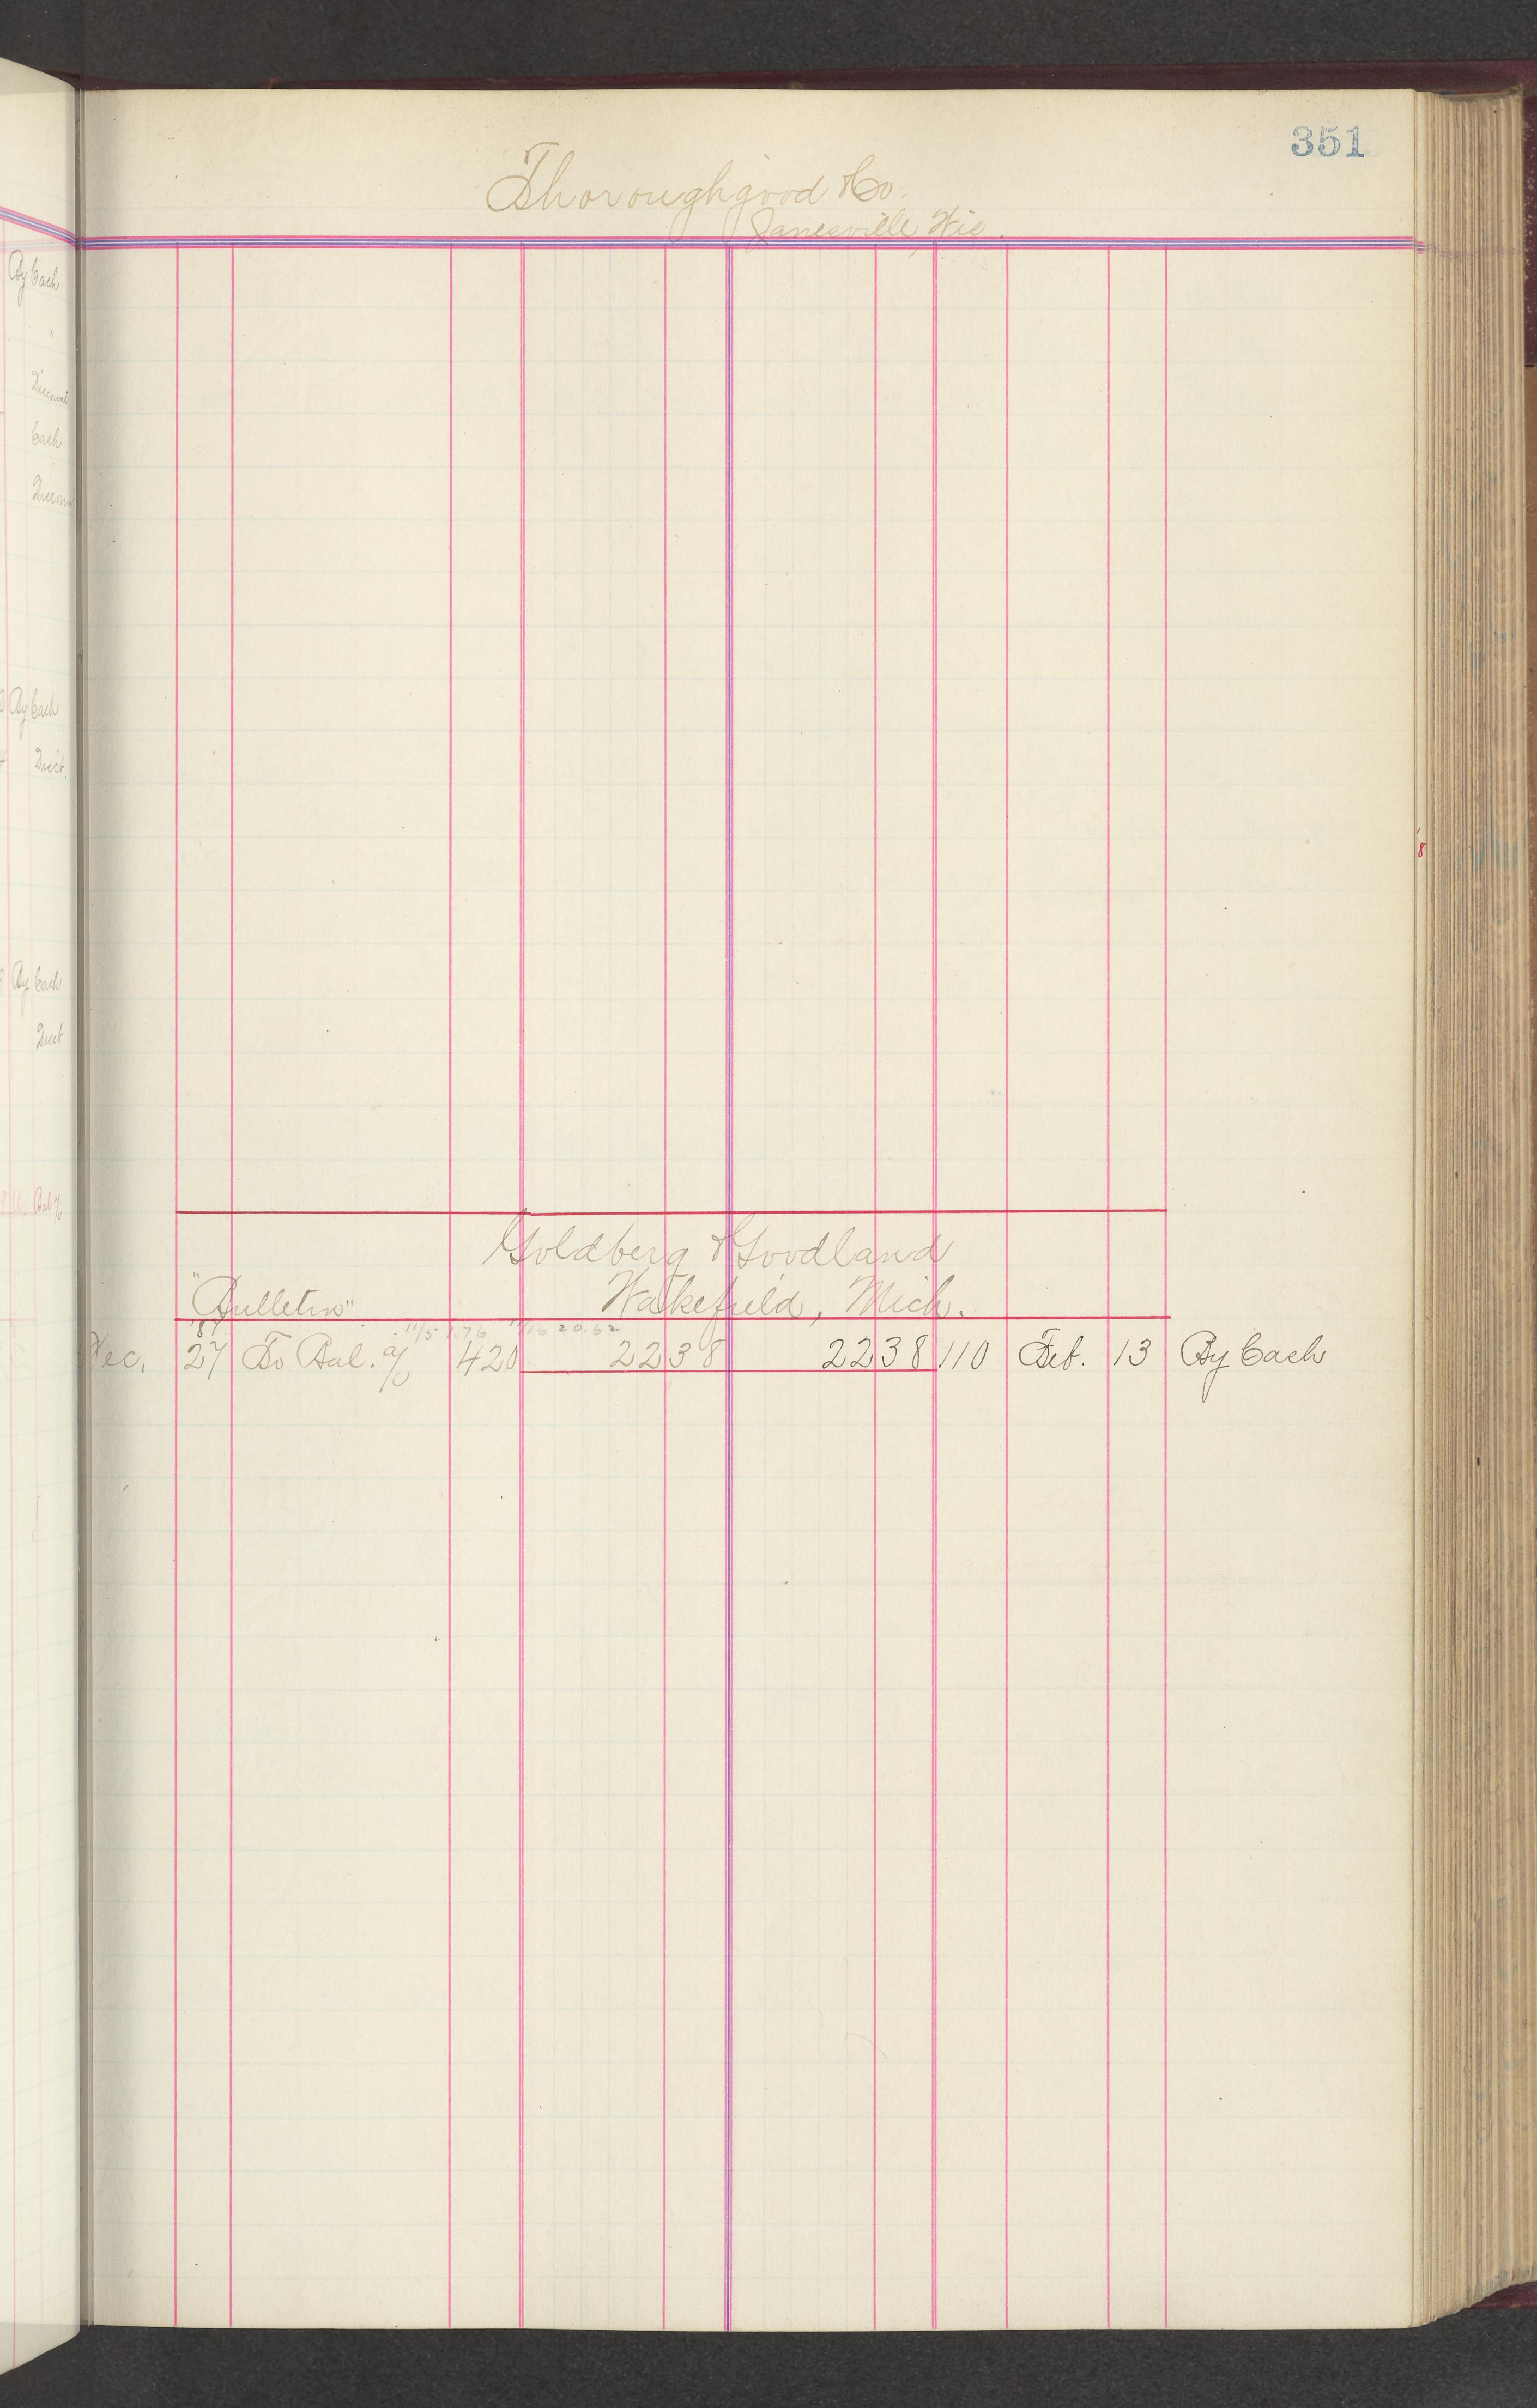 351
Thoroughgood & Co.
Janesville, Wis.
Goldberg & Goodland
"Bulletin" Wakefield, Mich.
'87 11/5 1.76 11/16 20.62
Dec. 27 To Bal. a/c 420 22 38 22 38 110 Feb. 13 By Cash
By Cash
"
Discount
Cash
Discount
By Cash
Disct.
By Cash
Disct
Bal a/c